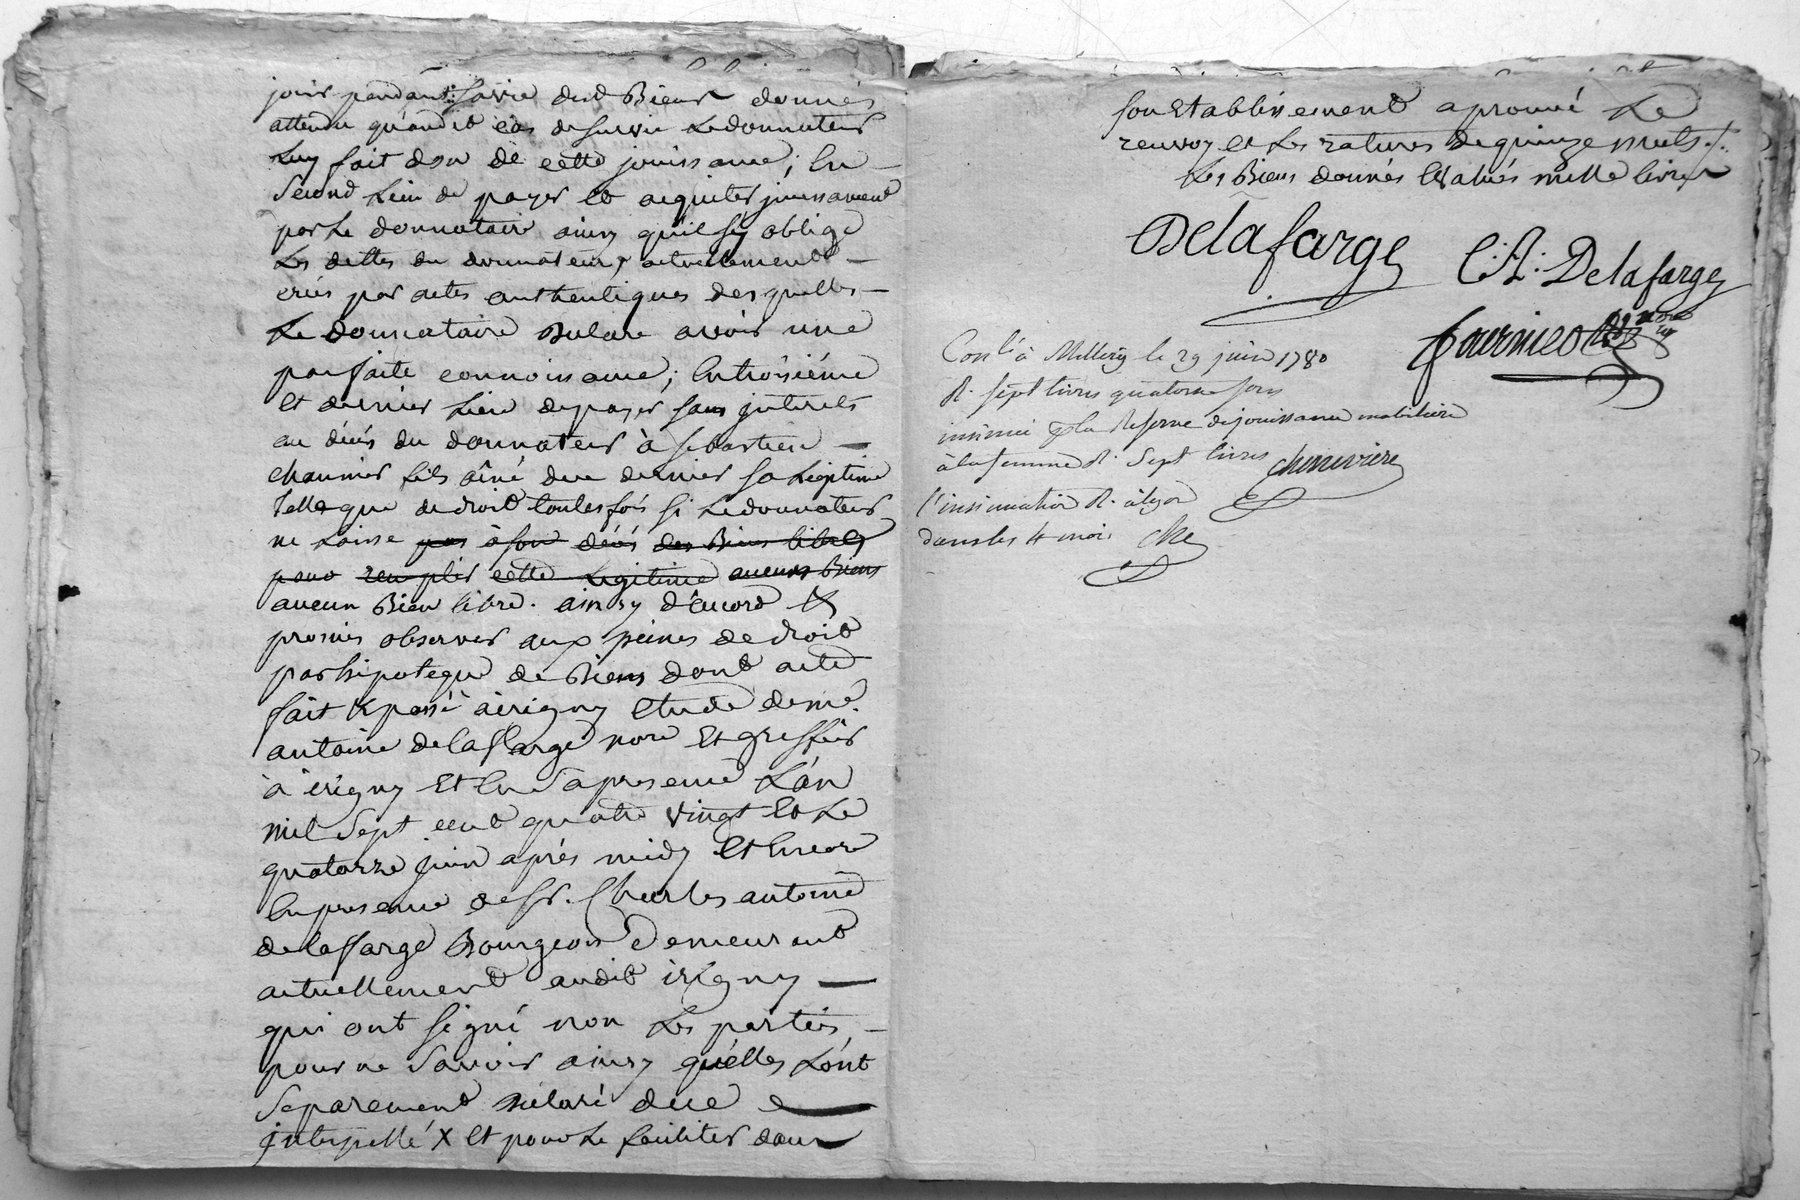 jouir pendant sa vie desd Biens donnés
attendu qu'audit cas de survie Le donnateur
Luy fait don de cette jouissance; En
Second Lieu de payer et acquiter jouissament
par Le donnataire ainsy qu'il s'y oblige
Les dettes du donnateur actuellement
créés par actes authentiques desquelles
Le donnataire declare avoir une
parfaite connoissance; En troisième
Et dernier Lieu de payer sans jnterets
au décés du donnateur à sebastien
chaumier fils aîné de ce dernier sa Légitime
Telle que de droit toutes fois si Le donnateur
ne Laisse pas à son décés des Biens libres
pour remplir cette Legitime aucuns Biens
aucun Bien libre. ainsy d'accord &
promis observer aux peines de droit
par hipoteque de Biens dont acte
fait & passé à irigny Etude de me.
antoine delaffarge nore Et greffier
à irigny Et En sa presence L'an
mil Sept cent quatre vingt Et Le
quatorze juin après midy Et Encore
En presence de Sr. Charles antoine
delaffarge Bourgeois demeurant
actuellement audit irigny
qui ont signé non Les parties
pour ne Savoir ainsy qu'elles L'ont
Separement declaré de ce
jnterpellé X Et pour Le faciliter dans
son Etablissement aprouvé Le
renvoy et Les ratures de quinze mots
Les Biens donnés Evalués mille livres
Delafarge
C: A: Delafarge
Conlé à Millery le 29 juin 1780
R. sept livres quatorze sous
insinué la Reserve de jouissance mobiliere
à la femme R. Sept livres
chenevriere
l'insinuation R. à lyon
dans les 4 mois che